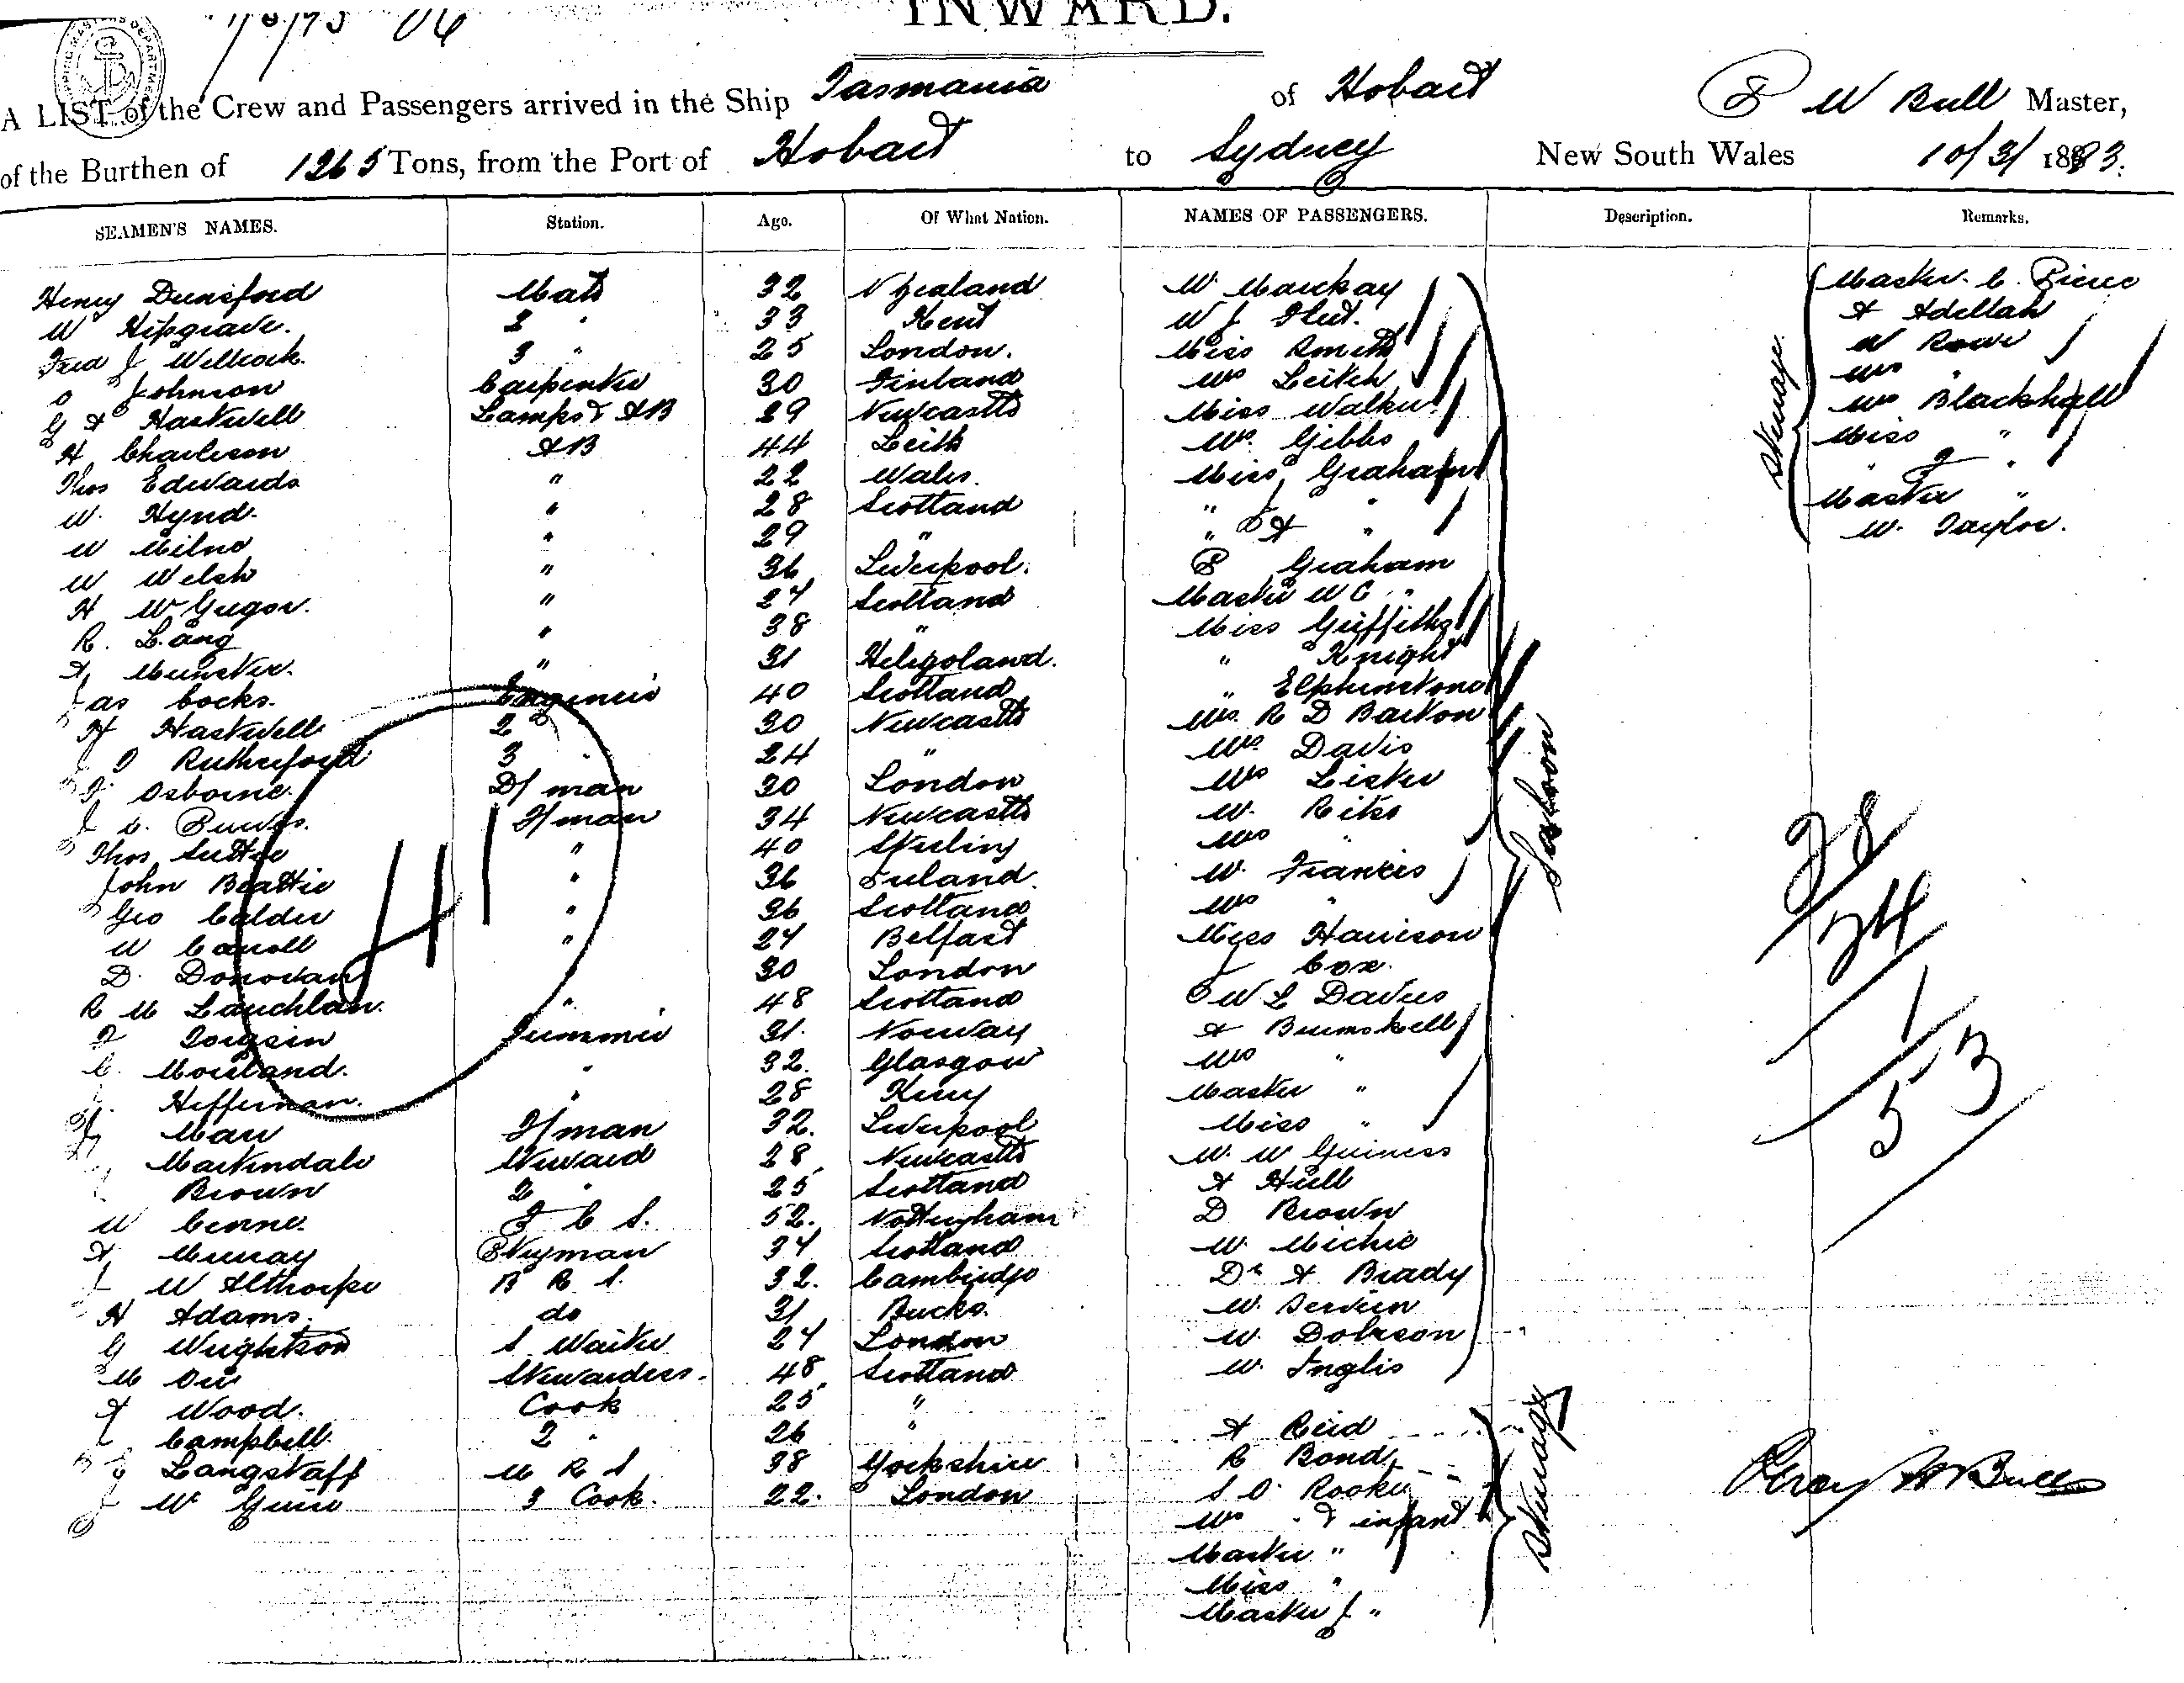 INWARD.
A LIST of the Crew and Passengers arrived in the Ship Tasmania of Hobart P W Bull Master,
of the Burthen of 1265 Tons, from the Port of Hobart to Sydney New South Wales 10/3/1893.
SEAMEN'S NAMES. Station. Age. Of What Nation. NAMES OF PASSENGERS. Description. Remarks.
Henry Dunsford Mate 32 N Zealand
W Hipgrave. 2 " 33 Kent
Fred J Willcock. 3 " 25 London.
Johnson Carpenter 30 Finland
G A Hastwell Lamps & AB 29 Newcastle
H Charleson AB 44 Leith
Thos Edwards " 22 Wales.
W. Hynd. " 28 Scotland
W Milne " 29 "
W Welsh " 36 Liverpool.
H McGregor. " 27 Scotland
R. Lang " 38 "
A Munster. " 31 Heligoland.
Jas Cocks. Engineer 40 Scotland
H Hastwell 2 30 Newcastle
Rutherford 3 " 24 "
Osborne. D/man 30 London
Purves. F/man 34 Newcastle
Thos Suttie " 40 Stirling
John Beattie " 36 Ireland.
Geo Calder " 36 Scotland
W Carroll " 27 Belfast
D. Donovan 30 London
R Mc Lauchlan. " 48 Scotland
Torgsein Trimmer 31. Norway
C. Moreland. " 32. Glasgow
Heffernan. " 28 Kerry
Marr F/man 32. Liverpool
Martindale Steward 28 Newcastle
Brown 2 " 25 Scotland
W F C S. 52. Nottingham
A Murray P/tryman 37 Scotland
W Althorpe B R S. 32. Cambridge
H Adams. do 31 Bucks.
G Wrightson S Waiter 27 London
M Orr Stewardess. 48 Scotland
A Wood. Cook 25 "
Campbell. 2 " 26 "
Langstaff M R S 38 Yorkshire
W 3 Cook. 22. London
41
Mr. Mackay
W J Flut.
Miss Smith
Mrs Leitch
Miss Walker
Mrs. Gibbs
Miss Graham
" J "
" E A "
P Graham
Master W C "
Miss Griffiths
" Knight
" Elphinstone
Mrs. R D Barton
Mrs. Davis
Mrs Lister
Mr. Reiks
Mrs "
Mr. Francis
Mrs "
Miss Harrison
J Cox.
W L Davies
A Brumskell
Mrs "
Master "
Miss "
Mr. Mc Guiness
A Hull
D Brown
Mr. Michie
Dr A. Brady
Mr. Servien
Mr. Dobson
Mr. Inglis
Saloon
A Reid
R Bond
S O. Rooke
Mrs " & infant
Master "
Miss "
Master J "
Steerage
Master. C. Pierce
A Adellah
W Rowe
Mrs "
Mrs Blackhall
Miss "
" J "
Master "
W. Taylor.
Steerage
28
24
1
53
Percy W Bull